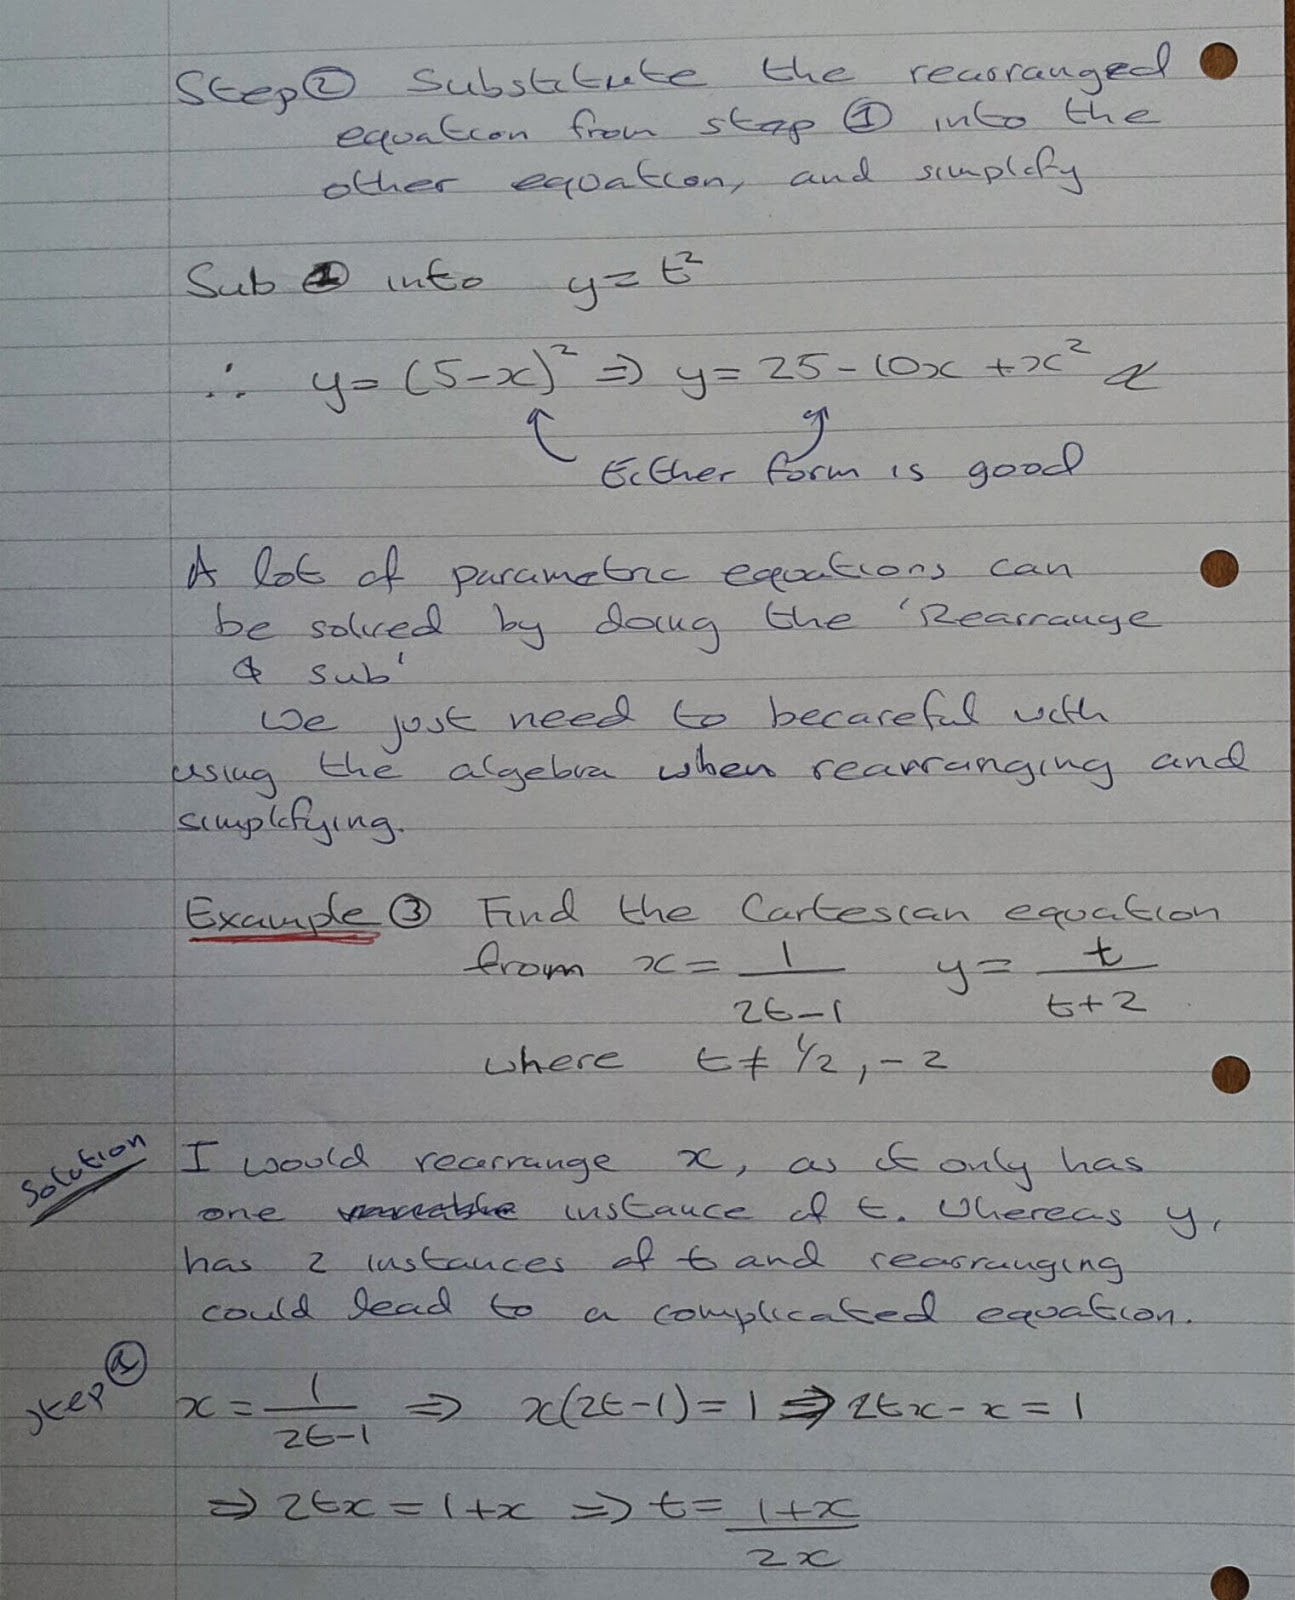 Step ② Substitute the rearranged
equation from step ① into the
other equation, and simplify
Sub ① into y = t²
∴ y = (5-x)² ⇒ y = 25 - 10x + x²
Either form is good
A lot of parametric equations can
be solved by doing the 'Rearrange
& sub'
We just need to becareful with
using the algebra when rearranging and
simplifying.
Example ③ Find the Cartesian equation
from x = 1/(2t-1) y = t/(t+2)
where t ≠ 1/2, -2
Solution I would rearrange x, as it only has
one instance of t. Whereas y,
has 2 instances of t and rearranging
could lead to a complicated equation.
Step ① x = 1/(2t-1) ⇒ x(2t-1) = 1 ⇒ 2tx - x = 1
⇒ 2tx = 1+x ⇒ t = (1+x)/(2x)